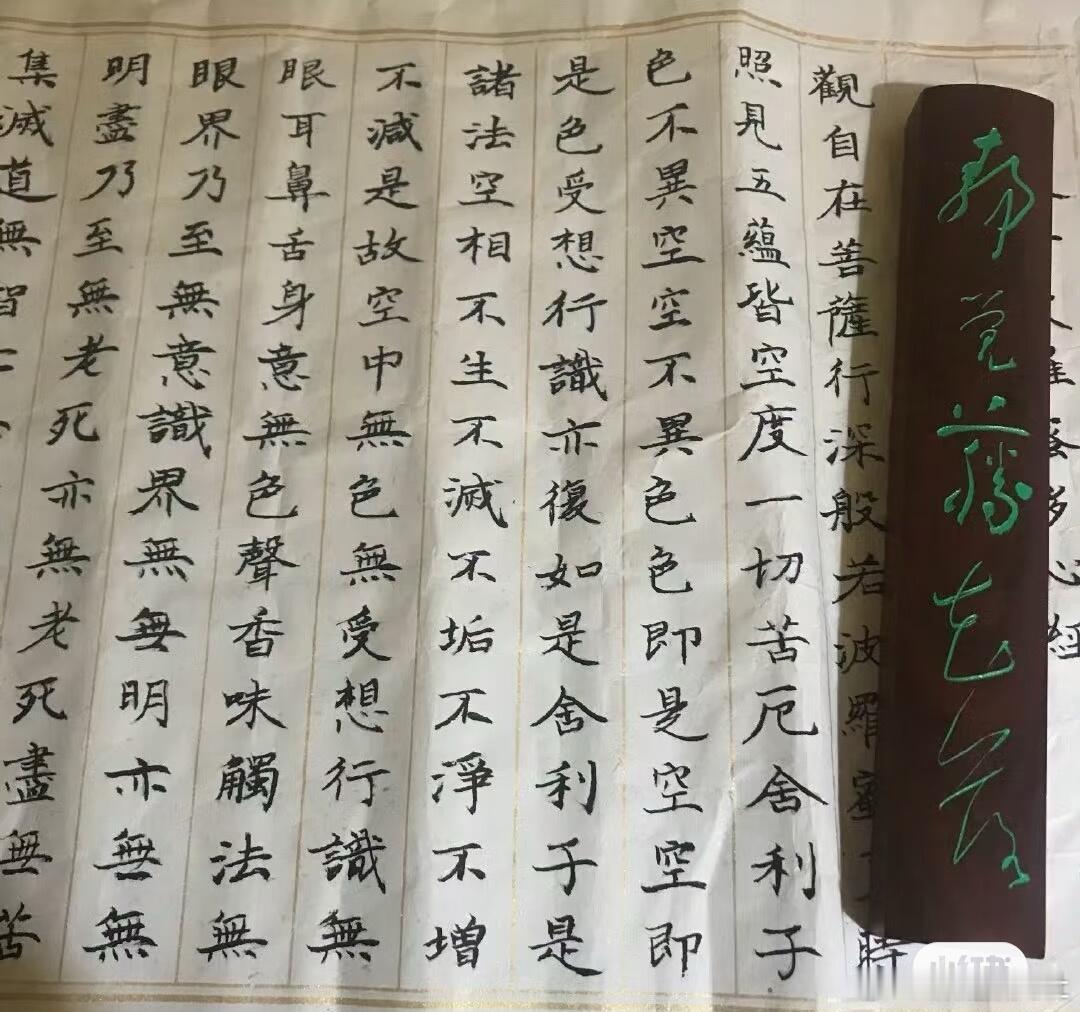 心經
觀自在菩薩行深般若波羅蜜多時
照見五蘊皆空度一切苦厄舍利子
色不異空空不異色色即是空空即
是色受想行識亦復如是舍利子是
諸法空相不生不滅不垢不淨不增
不減是故空中無色無受想行識無
眼耳鼻舌身意無色聲香味觸法無
眼界乃至無意識界無無明亦無無
明盡乃至無老死亦無老死盡無苦
集滅道無智
静觉藤花落
小红书